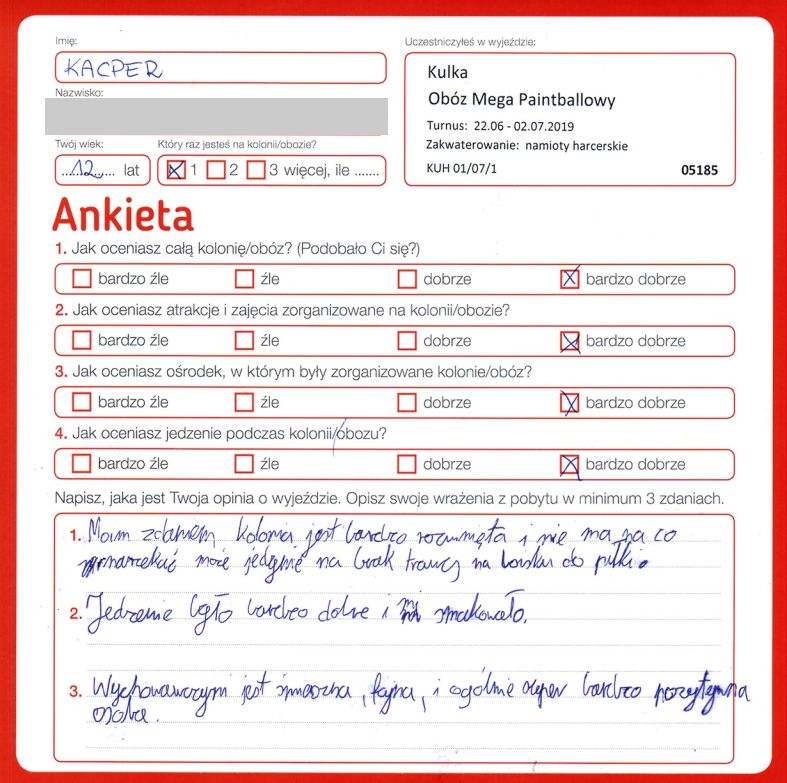 Imię:
KACPER
Nazwisko:
Twój wiek:
...12... lat
Który raz jesteś na kolonii/obozie?
1 2 3 więcej, ile .......
Uczestniczyłeś w wyjeździe:
Kulka
Obóz Mega Paintballowy
Turnus: 22.06 - 02.07.2019
Zakwaterowanie: namioty harcerskie
KUH 01/07/1 05185
Ankieta
1. Jak oceniasz całą kolonię/obóz? (Podobało Ci się?)
bardzo źle źle dobrze bardzo dobrze
2. Jak oceniasz atrakcje i zajęcia zorganizowane na kolonii/obozie?
bardzo źle źle dobrze bardzo dobrze
3. Jak oceniasz ośrodek, w którym były zorganizowane kolonie/obóz?
bardzo źle źle dobrze bardzo dobrze
4. Jak oceniasz jedzenie podczas kolonii/obozu?
bardzo źle źle dobrze bardzo dobrze
Napisz, jaka jest Twoja opinia o wyjeździe. Opisz swoje wrażenia z pobytu w minimum 3 zdaniach.
1. Moim zdaniem kolonia jest bardzo i nie ma na co
narzekać może jedynie na brak trawy na boisku do piłki.
2. Jedzenie było bardzo dobre i mi smakowało.
3. Wychowawczyni jest śmieszna, fajna, i ogólnie super bardzo pozytywna
osoba.